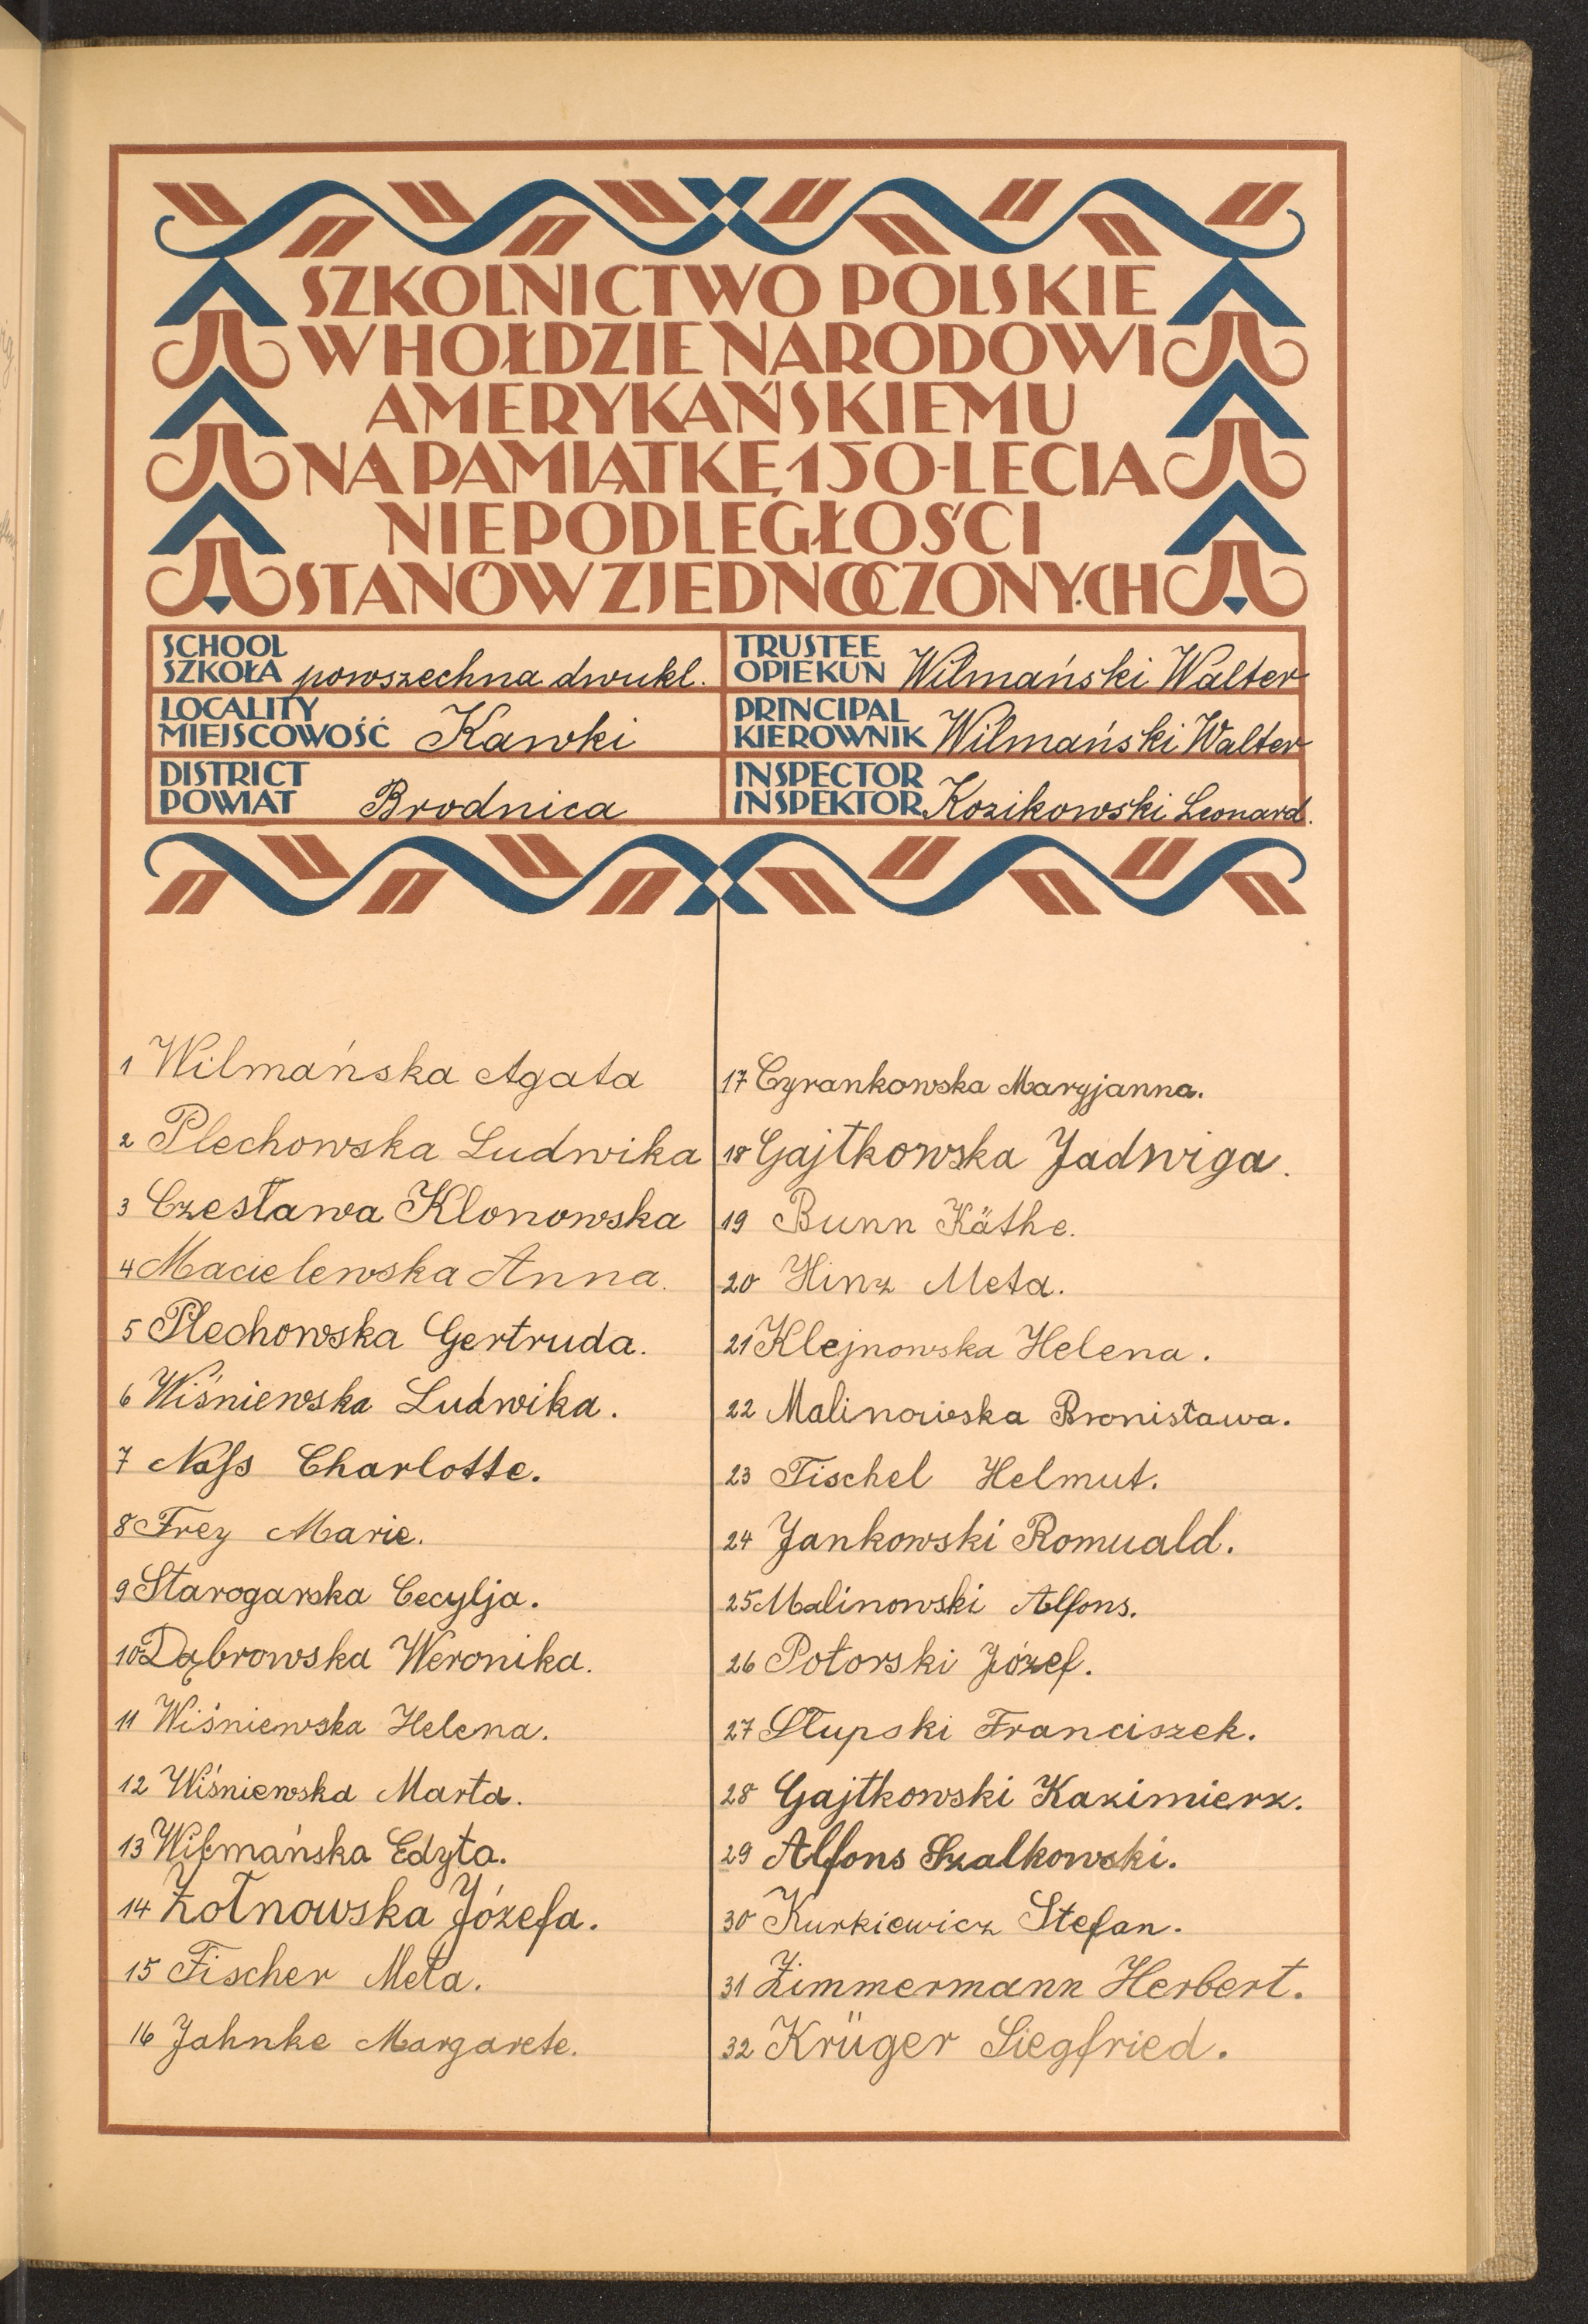 SZKOLNICTWO POLSKIE
W HOŁDZIE NARODOWI
AMERYKAŃSKIEMU
NA PAMIĄTKĘ 150-LECIA
NIEPODLEGŁOŚCI
STANÓW ZJEDNOCZONYCH
SCHOOL
SZKOŁA powszechna dwukl.
TRUSTEE
OPIEKUN Wilmański Walter
LOCALITY
MIEJSCOWOŚĆ Kawki
PRINCIPAL
KIEROWNIK Wilmański Walter
DISTRICT
POWIAT Brodnica
INSPECTOR
INSPEKTOR Kozikowski Leonard.
1 Wilmańska Agata
2 Plechowska Ludwika
3 Czesława Klonowska
4 Macielewska Anna.
5 Plechowska Gertruda.
6 Wiśniewska Ludwika.
7 Naſs Charlotte.
8 Frey Marie.
9 Starogarska Cecylja.
10 Dąbrowska Weronika.
11 Wiśniewska Helena.
12 Wiśniewska Marta.
13 Wilmańska Edyta.
14 Żołnowska Józefa.
15 Fischer Meta.
16 Jahnke Margarete.
17 Cyrankowska Maryjanna.
18 Gajtkowska Jadwiga.
19 Bunn Käthe.
20 Hinz Meta.
21 Klejnowska Helena.
22 Malinowska Bronisława.
23 Tischel Helmut.
24 Jankowski Romuald.
25 Malinowski Alfons.
26 Potorski Józef.
27 Słupski Franciszek.
28 Gajtkowski Kazimierz.
29 Alfons Szalkowski.
30 Kurkiewicz Stefan.
31 Zimmermann Herbert.
32 Krüger Siegfried.